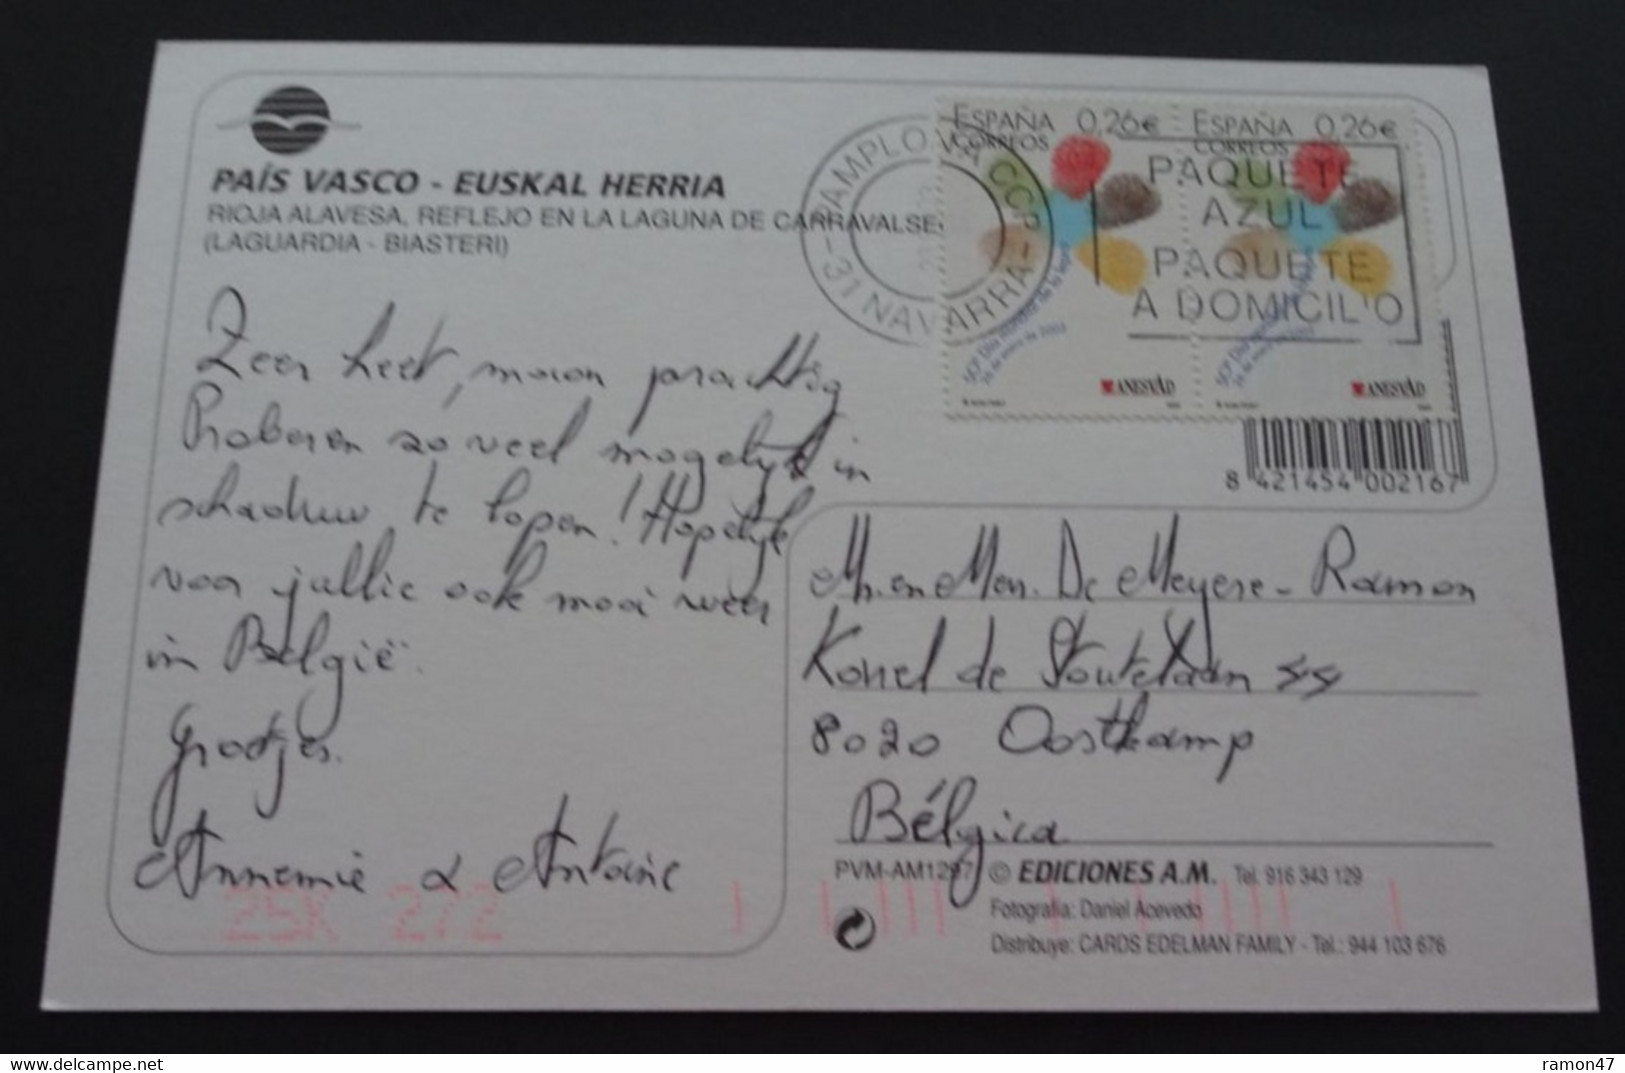 PAÍS VASCO - EUSKAL HERRIA
RIOJA ALAVESA, REFLEJO EN LA LAGUNA DE CARRAVALSE
(LAGUARDIA - BIASTERI)
PAMPLONA CCP
31 NAVARRA
ESPAÑA 0,26€
CORREOS
ESPAÑA 0,26€
CORREOS
PAQUETE
AZUL
PAQUETE
A DOMICIL'O
50º Día mundial de la lepra
26 de enero de 2003
ANESVAD
ANESVAD
8 421454 002167
Zeer heet, maar prachtig
Proberen zo veel mogelijk in
schaduw te lopen! Hopelijk
voor jullie ook mooi weer
in België.
Grootjes.
Annemie & Antoine
Mr. en Mevr. De Meyere - Ramon
Karel de Stoutelaan
8020 Oostkamp
Bélgica
PVM-AM1297 © EDICIONES A.M. Tel. 916 343 129
Fotografía: Daniel Acevedo
Distribuye: CARDS EDELMAN FAMILY - Tel.: 944 103 676
25K 272
delcampe.net
ramon47